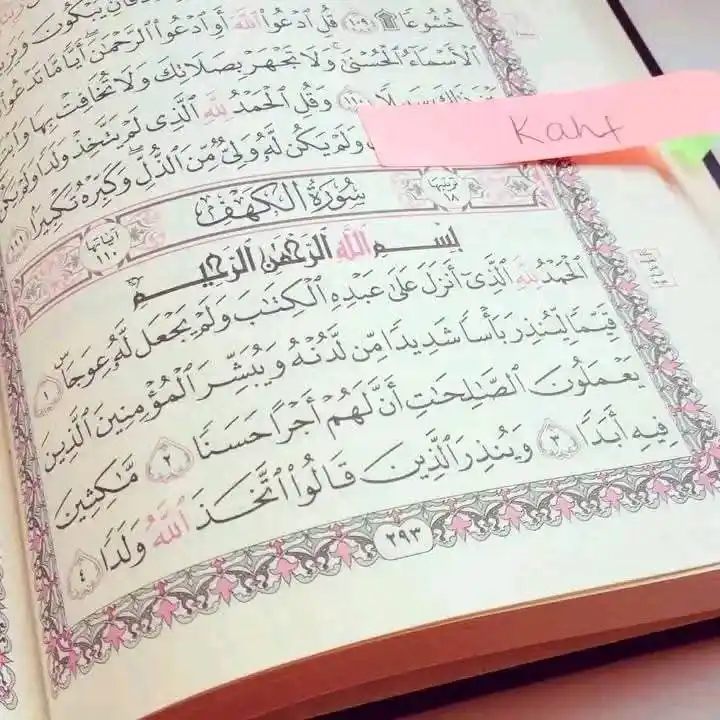 خُشُوعًا ۩ ١٠٩ قُلِ ٱدْعُوا۟ ٱللَّهَ أَوِ ٱدْعُوا۟ ٱلرَّحْمَٰنَ أَيًّا مَّا تَدْعُوا۟
ٱلْأَسْمَآءُ ٱلْحُسْنَىٰ وَلَا تَجْهَرْ بِصَلَاتِكَ وَلَا تُخَافِتْ بِهَا
سَبِيلًا ١١٠ وَقُلِ ٱلْحَمْدُ لِلَّهِ ٱلَّذِى لَمْ يَتَّخِذْ وَلَدًا وَلَمْ يَكُن
وَلَمْ يَكُن لَّهُۥ وَلِىٌّ مِّنَ ٱلذُّلِّ وَكَبِّرْهُ تَكْبِيرًۢا ١١١
Kahf
ترتيبها ١٨ سُورَةُ الكَهْف آياتها ١١٠
بِسْمِ ٱللَّهِ ٱلرَّحْمَٰنِ ٱلرَّحِيمِ
ٱلْحَمْدُ لِلَّهِ ٱلَّذِىٓ أَنزَلَ عَلَىٰ عَبْدِهِ ٱلْكِتَٰبَ وَلَمْ يَجْعَل لَّهُۥ عِوَجَاۜ ١
قَيِّمًا لِّيُنذِرَ بَأْسًا شَدِيدًا مِّن لَّدُنْهُ وَيُبَشِّرَ ٱلْمُؤْمِنِينَ ٱلَّذِينَ
يَعْمَلُونَ ٱلصَّٰلِحَٰتِ أَنَّ لَهُمْ أَجْرًا حَسَنًا ٢ مَّٰكِثِينَ
فِيهِ أَبَدًا ٣ وَيُنذِرَ ٱلَّذِينَ قَالُوا۟ ٱتَّخَذَ ٱللَّهُ وَلَدًا ٤
٢٩٣